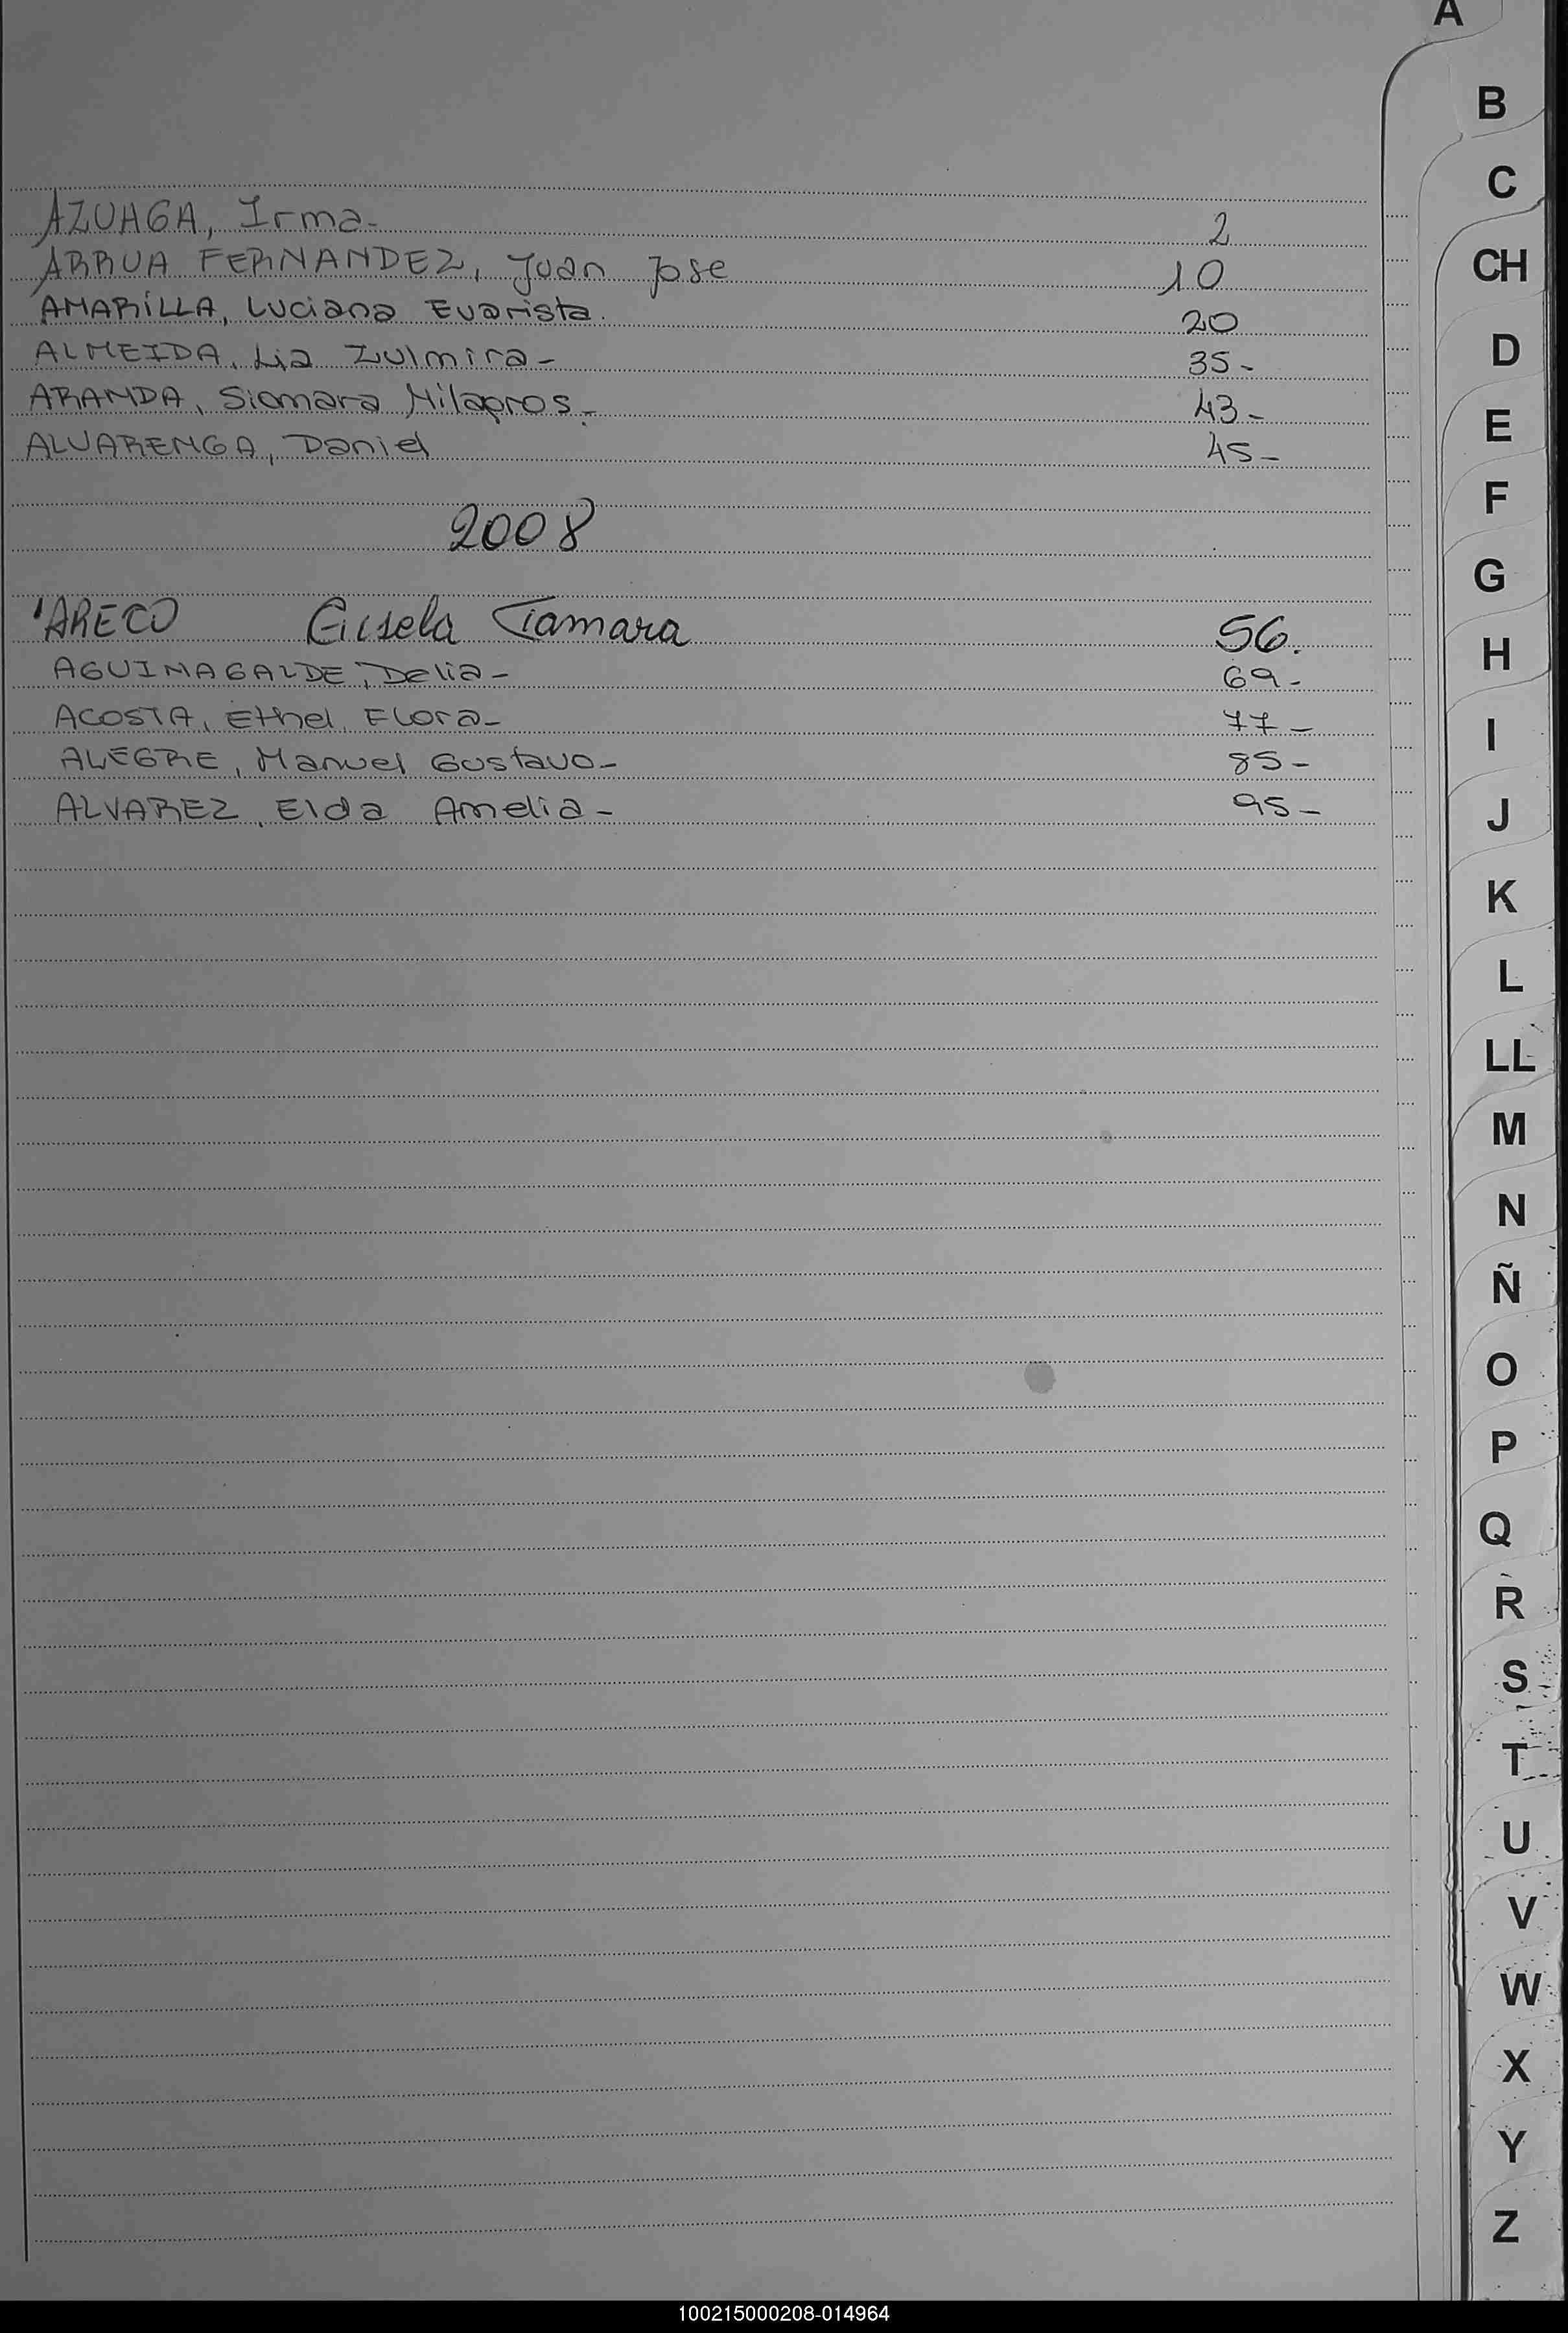 AZUAGA, Irma- 2
ARRUA FERNANDEZ, Juan Jose 10
AMARILLA, Luciana Evarista. 20
ALMEIDA, Lia Zulmira- 35-
ARANDA, Siomara Milagros.- 43-
ALVARENGA, Daniel 45-
2008
ARECO Gisela Tamara 56.
AGUINAGALDE, Delia- 69-
ACOSTA, Ethel Flora- 77-
ALEGRE, Manuel Gustavo- 85-
ALVAREZ, Elda Amelia- 95-
A
B
C
CH
D
E
F
G
H
I
J
K
L
LL
M
N
Ñ
O
P
Q
R
S
T
U
V
W
X
Y
Z
100215000208-014964